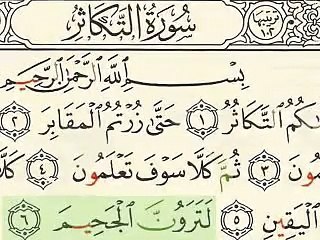 سُورَةُ التَّكَاثُرِ
ترتيبها ١٠٢
بِسْمِ اللَّهِ الرَّحْمَٰنِ الرَّحِيمِ
التَّكَاثُرُ ١ حَتَّىٰ زُرْتُمُ الْمَقَابِرَ ٢
٣ ثُمَّ كَلَّا سَوْفَ تَعْلَمُونَ ٤ كَلَّا
الْيَقِينِ ٥ لَتَرَوُنَّ الْجَحِيمَ ٦